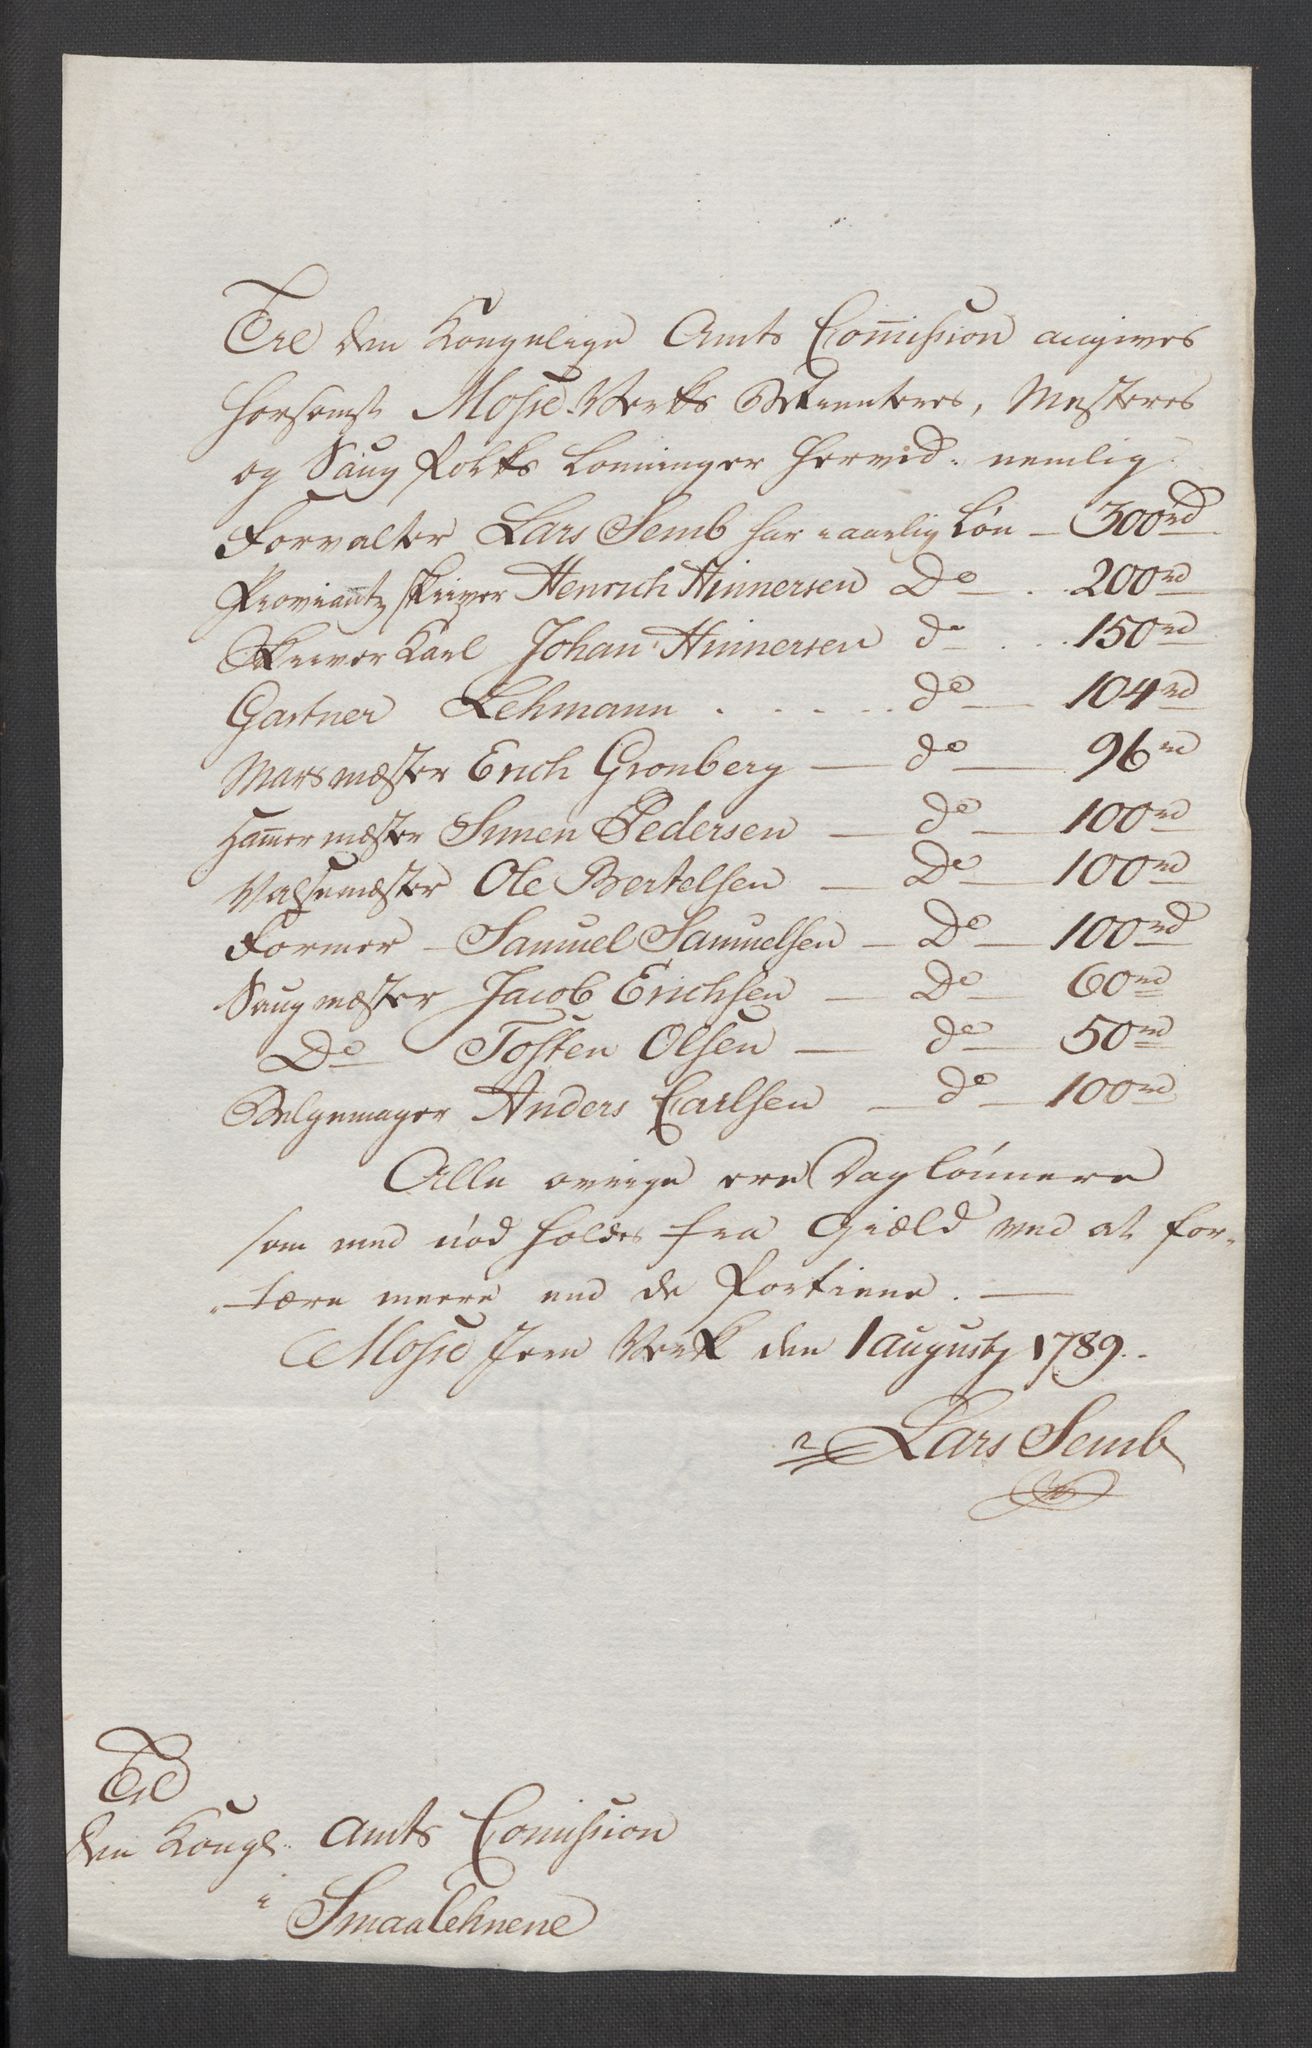 Til den Kongelige Amts Com̅ission angives
herfemst Mosse-Verks Betienteres, Mesteres
og Saug Folks Lønninger hervid. nemlig.
Forvalter Lars Semb har i aarlig Løn — 300 rd
Proviantz skriver Henrich Hinnersen Do . . 200 rd
Skriver Karl Johan Hinnersen do . . . 150 rd
Gartner Lehmann . . . . . do — 104 rd
Marsmæster Erich Gronberg — do — 96 rd
Ham̅ermæster Simen Pedersen — do — 100 rd
Valsemæster Ole Bertelsen — Do — 100 rd
Former — Samuel Samuelsen — Do — 100 rd
Saugmæster Jacob Erichsen — Do — 60 rd
Do Tosten Olsen — do — 50 rd
Belgemager Anders Carlsen — do — 100 rd
Alle øvrige ere Daglønnere
som med nød holdes fra Giæld ved at for-
-tære meere end de fortiene. —
Mosse Jern Verk den 1 augusty 1789..
Lars Semb
Til
den Kongl. Amts Comission
i
Smaalehnene